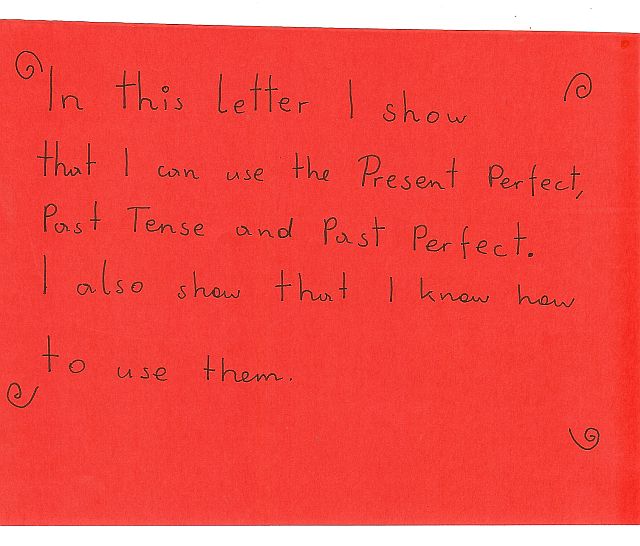 In this letter I show
that I can use the Present Perfect,
Past Tense and Past Perfect.
I also show that I know how
to use them.